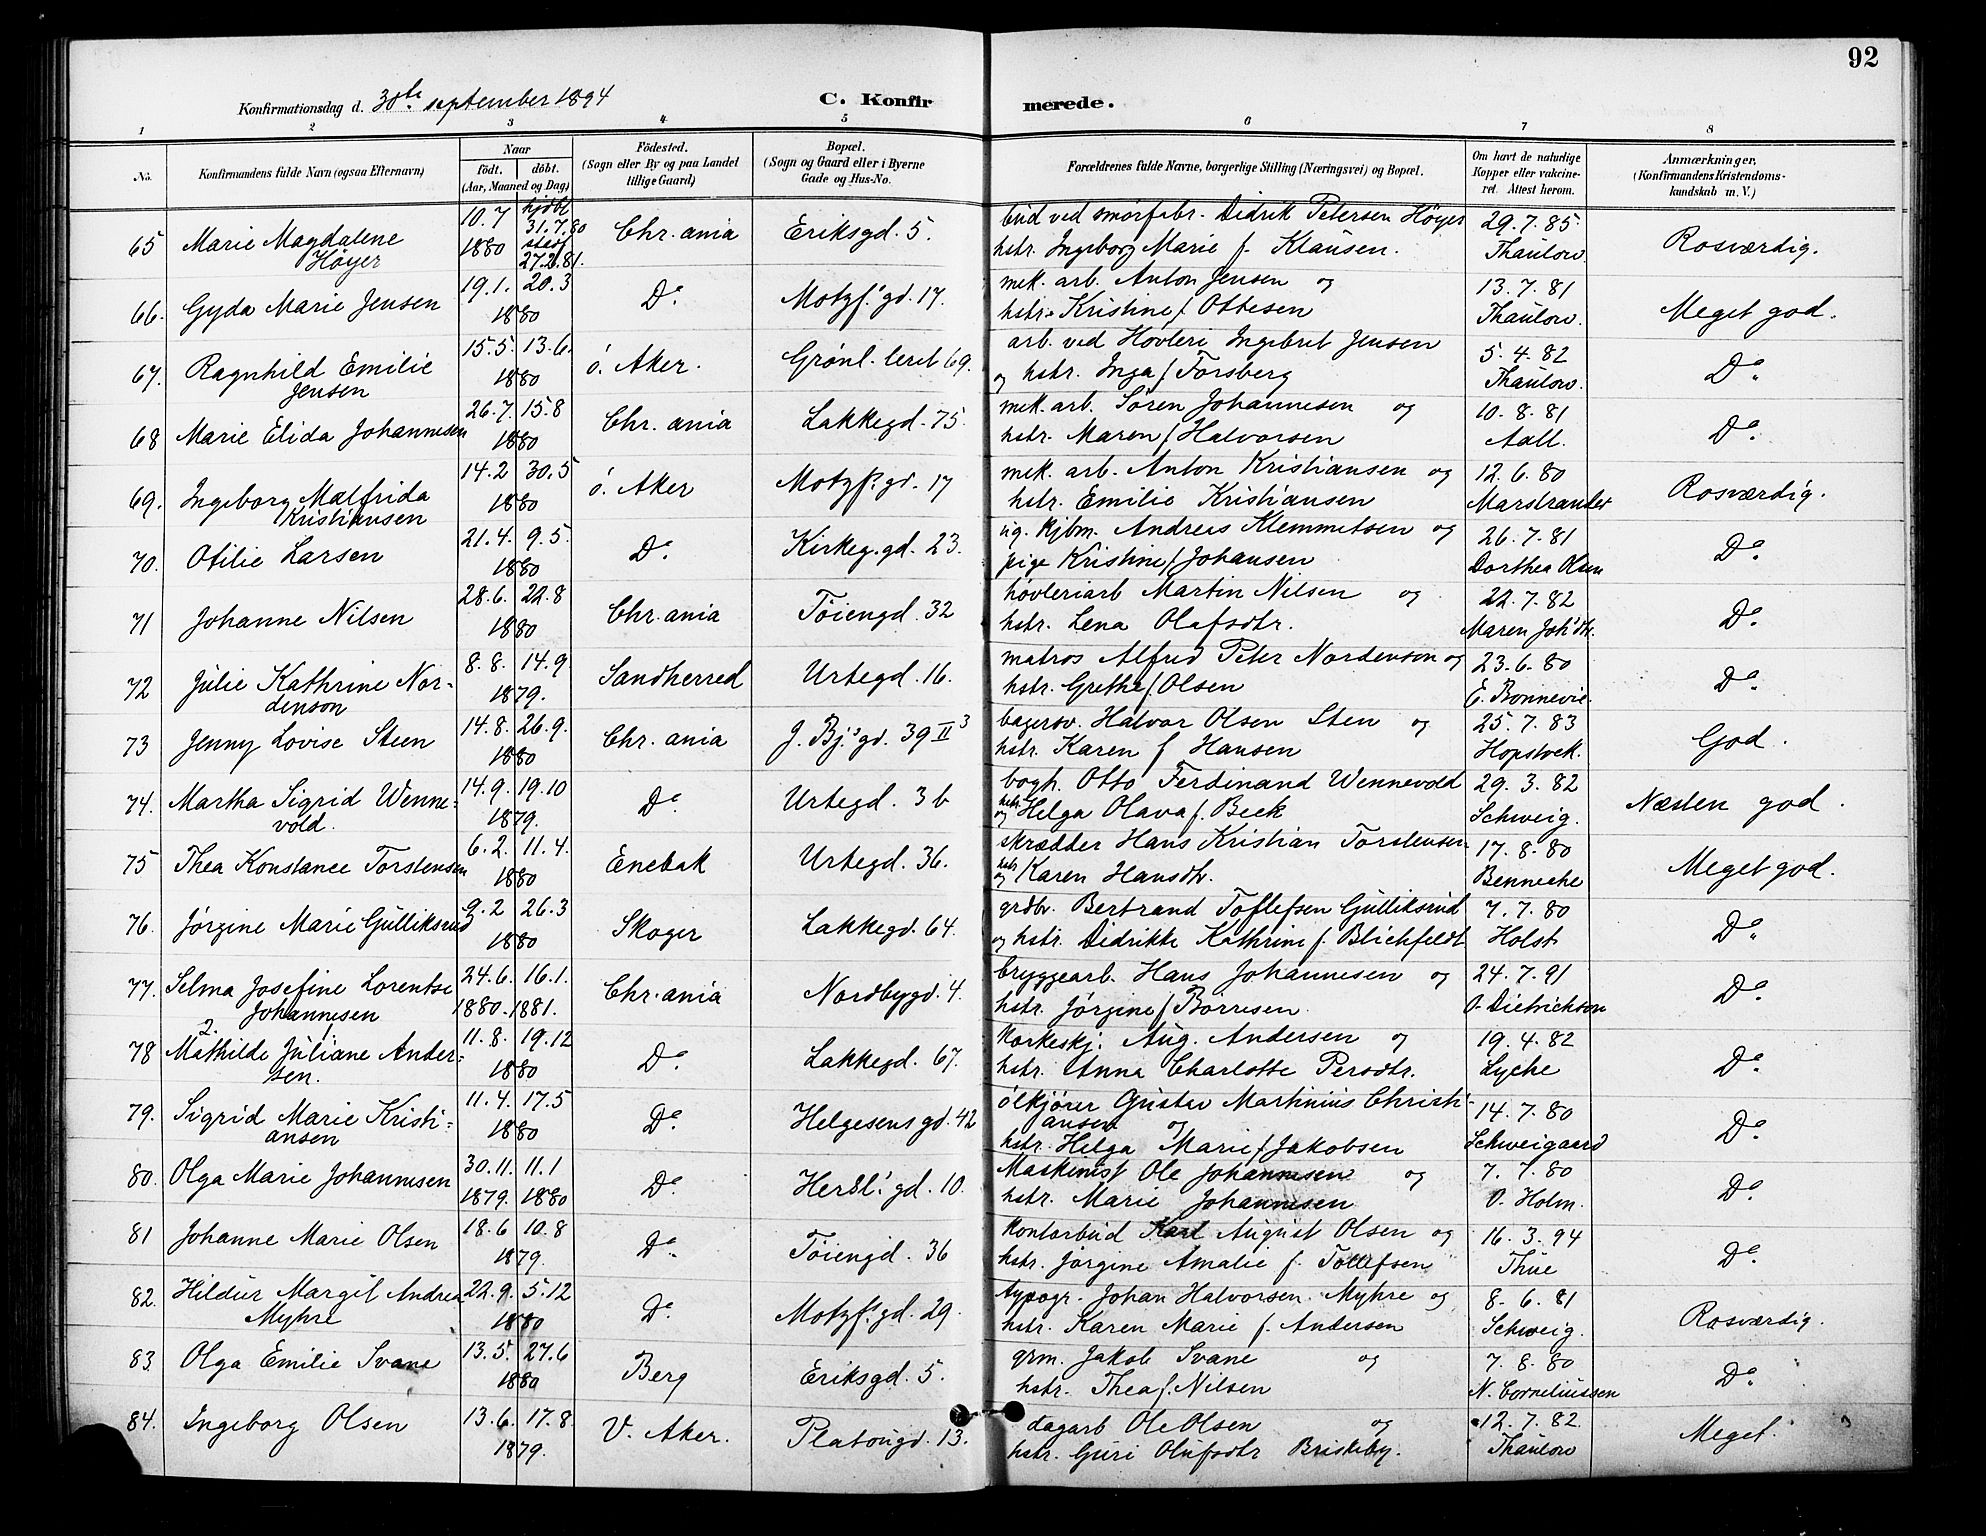 92
Konfirmationsdag d. 30te september 1894 C. Konfir merede.
1 2 3 4 5 6 7 8
No. Konfirmandens fulde Navn (ogsaa Efternavn) Naar født. døbt. (Aar, Maaned og Dag) Fødested. (Sogn eller By og paa Landet tillige Gaard) Bopæl. (Sogn og Gaard eller i Byerne Gade og Hus-No. Forældrenes fulde Navne, borgerlige Stilling (Næringsvei) og Bopæl. Om havt de naturlige Kopper eller vakcineret. Attest herom. Anmærkninger, (Konfirmandens Kristendomskundskab m. V.)
65 Marie Magdalene Høyer 10.7 1880 hjdbt 31.7.80 stedf 27.2.81. Chr.ania Eriksgd. 5. bud ved smørfabr. Didrik Petersen Høyer
hstr. Ingeborg Marie f. Klausen. 29.7.85. Thaulow. Rosværdig.
66. Gyda Marie Jensen 19.1. 20.3 1880 Do. Motzf.'gd. 17. mek. arb. Anton Jensen og
hstr. Kristine f. Ottesen 13.7.81 Thaulow. Meget god.
67. Ragnhild Emilie Jensen 15.5. 13.6. 1880 ö. Aker. Grønl. leret 69. arb. ved Høvleri Ingebret Jensen
og hstr. Inga f. Forsberg 5.4.82 Thaulow. Do.
68 Marie Elida Johannesen 26.7. 15.8 1880 Chr.ania Lakkegd. 75. mek. arb. Søren Johannesen og
hstr. Maren f. Halvorsen 10.8.81 Aall. Do.
69. Ingeborg Malfrida Kristiansen 14.2 30.5 1880 ö. Aker Motzf.'gd. 17 mek. arb. Anton Kristiansen og
hstr. Emilie Kristiansen 12.6.80 Marstrander Rosværdig.
70. Otilie Larsen 21.4. 9.5. 1880 Do. Kirkeg.gd. 23. ug. kjbm. Andreas Klemmetsen og
pige Kristine f. Johansen 26.7.81 Dorthea Olsen Do.
71 Johanne Nilsen 28.6. 22.8 1880 Chr.ania Töiengd. 32 høvleriarb Martin Nilsen og
hstr. Lena Olafsdtr. 22.7.82 Maren Joh'dtr. Do.
72 Julie Kathrine Nordenson 8.8. 14.9 1879. Sandherred Urtegd. 16. matros Alfred Peter Nordenson og
hstr. Grethe f. Olsen 23.6.80 E. Bonnevie. Do.
73 Jenny Lovise Steen 14.8. 26.9. 1880 Chr.ania J. Bj.'gd. 39 II 3 bagersv. Halvor Olsen Sten og
hstr. Karen f. Hansen 25.7.83 Hopstock. God.
74. Martha Sigrid Wennevold. 14.9. 19.10 1879. Do. Urtegd. 3b bogh. Otto Ferdinand Wennevold
og hstr. Helga Olava f. Beck 29.3.82 Schweig. Næsten god.
75 Thea Konstance Torstensen 6.2. 11.4. 1880 Enebak Urtegd. 36. skrædder Hans Kristian Torstensen
og hstr. Karen Hansdtr. 17.8.80 Benneche Meget god.
76. Jørgine Marie Gulliksrud 9.2 26.3 1880 Skoger Lakkegd. 64. grdbr. Bertrand Toflefsen Gulliksrud
og hstr. Didrikke Kathrine f. Blichfeldt 7.7.80 Holst Do.
77. Selma Josefine Lorentse Johannesen 24.6. 16.1. 1880. 1881. Chr.ania Nordbygd. 4. bryggearb. Hans Johannesen og
hstr. Jørgine f. Börresen. 24.7.91 O. Dietrichson Do.
78 Mathilde Juliane Andersen. 11.8. 19.12 1880 Do. Lakkegd. 67. korkeskj. Aug. Andersen og
hstr. Anna Charlotte Persdtr. 19.4.82 Lyche Do.
79. Sigrid Marie Kristiansen 11.4. 17.5 1880 Do. Helgesens gd. 42 ölkjörer Gustav Martinius Christiansen og
hstr. Helga Marie f. Jakobsen 14.7.80 Schweigaard Do.
80. Olga Marie Johannesen 30.11. 11.1 1879. 1880 Do. Hersl.'gd. 10. Maskinist Ole Johannesen og
hstr. Marie Johannesen 7.7.80 O. Holm. Do.
81 Johanne Marie Olsen 18.6 10.8 1879. Do. Töiengd. 36 kontorbud Karl August Olsen og
hstr. Jørgine Amalie f. Tollefsen 16.3.94 Thue Do.
82. Hildur Margit Andrea Myhre 22.9. 5.12 1880 Do. Motzf.'gd. 29. typogr. Johan Halvorsen Myhre og
hstr. Karen Marie f. Andersen 8.6.81 Schweig. Rosværdig.
83. Olga Emilie Svane 13.5. 27.6 1880 Berg Eriksgd. 5. grm. Jakob Svane og
hstr. Thea f. Nilsen 7.8.80 N. Corneliussen Do.
84. Ingeborg Olsen 13.6. 17.8. 1879. V. Aker. Platougd. 13. dagarb Ole Olsen og
hstr. Guri Olufsdtr Briskeby. 12.7.82. Thaulow Meget.